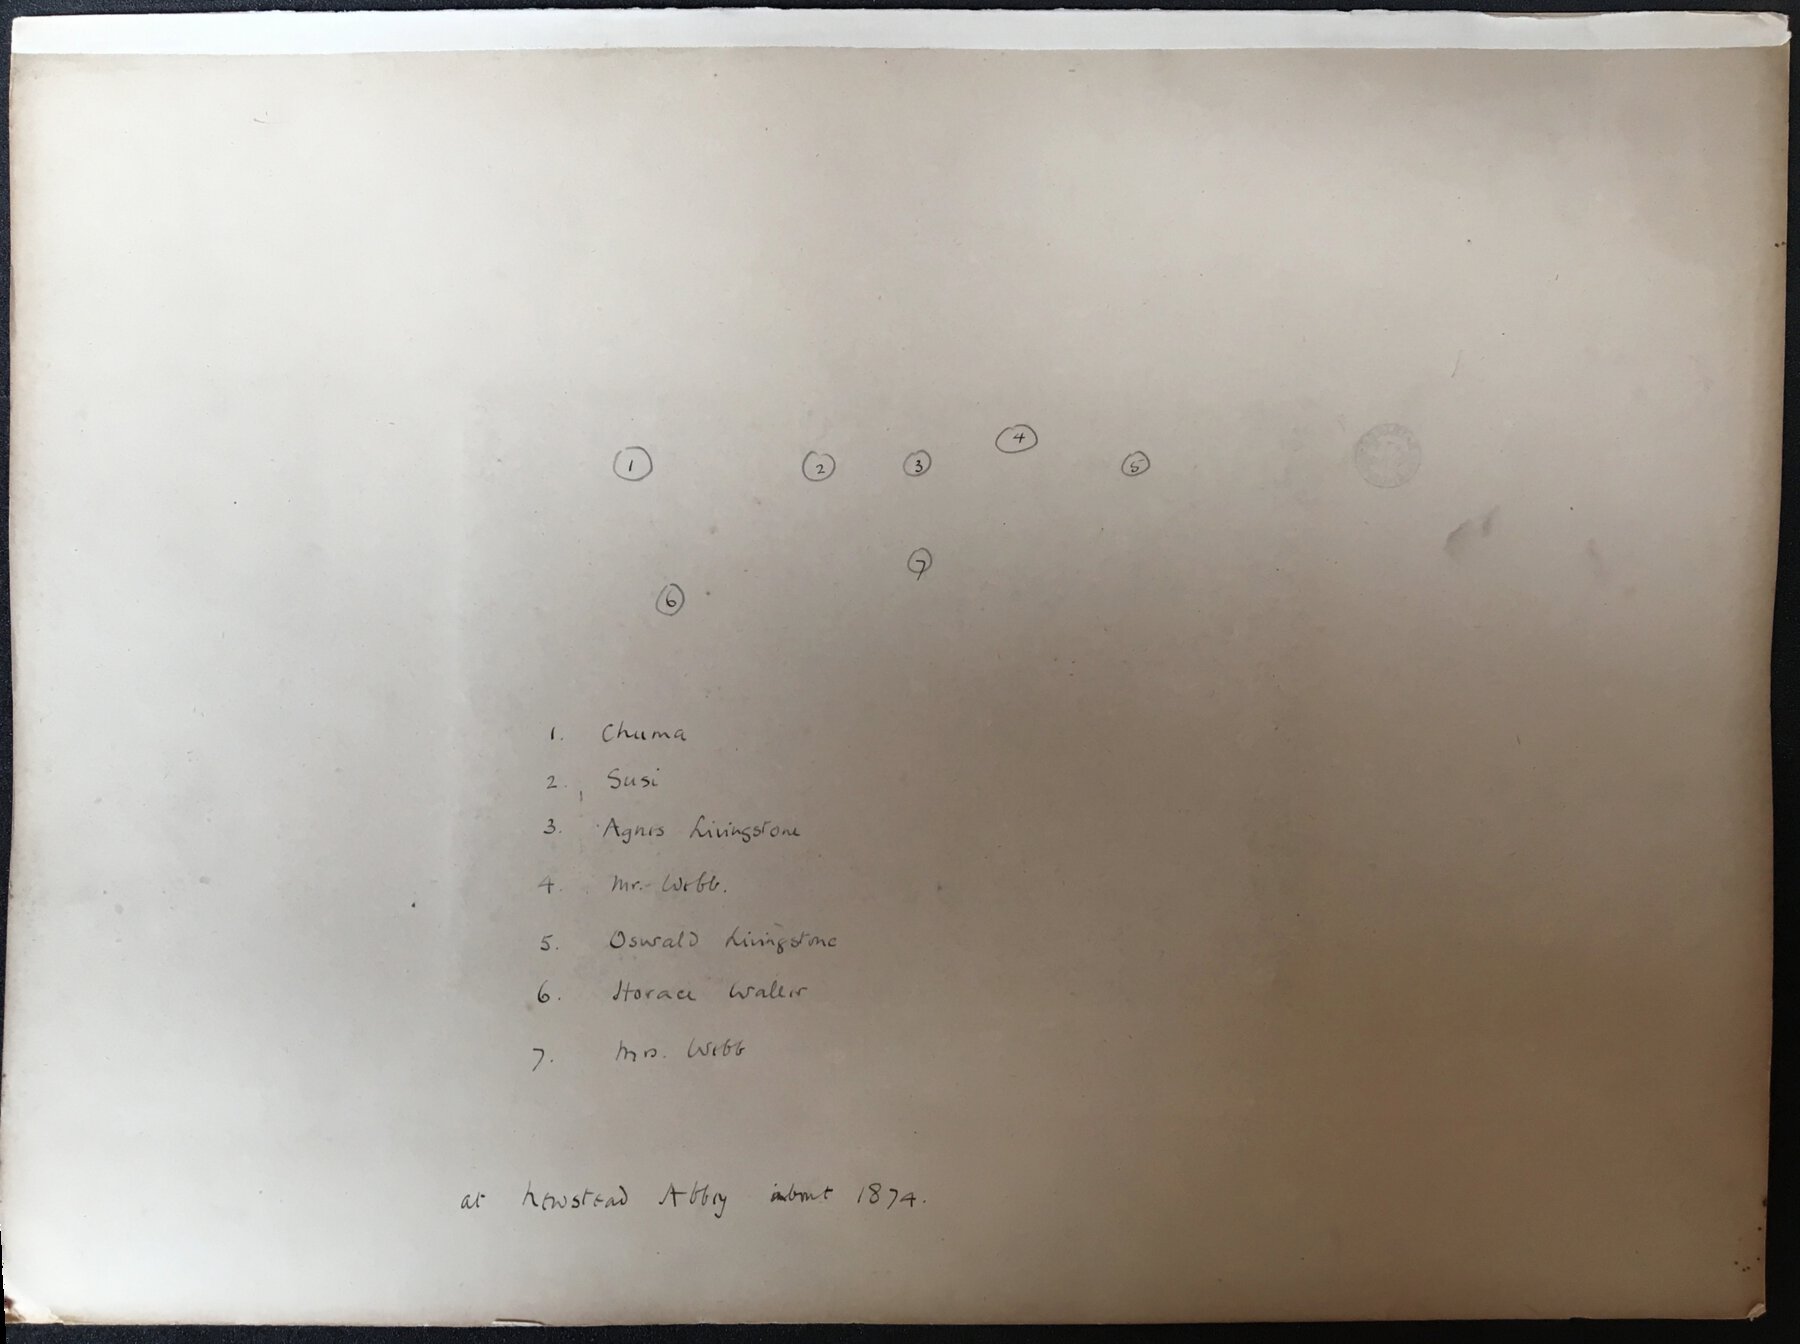 1 2 3 4 5
6 7
1. Chuma
2. Susi
3. Agnes Livingstone
4. Mr. Webb.
5. Oswald Livingstone
6. Horace Waller
7. Mrs. Webb
at Newstead Abbey about 1874.